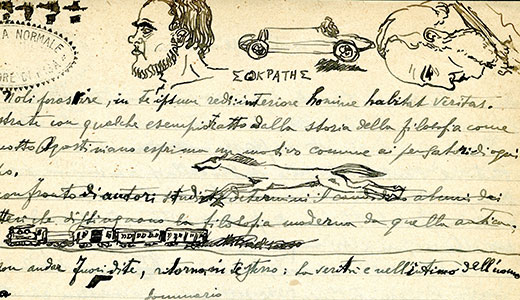 A NORMALE
ORE DI PISA
ΣΩΚΡΑΤΗΣ
Noli foras ire, in te ipsum redi: interiore homine habitat veritas.
strate con qualche esempio tratto dalla storia della filosofia come
motto Agostiniano esprima un motivo comune ai pensatori di ogni
confronto di autori studiati determini il candidato alcuni dei
tteri che distinguono la filosofia moderna da quella antica.
on andar fuori di te, ritorna in te stesso: la verità è nell'intimo dell'uomo
Sommario